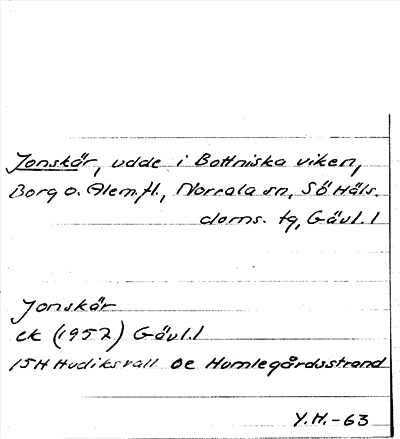 Jonskär, udde i Bottniska viken,
Borg o. Alem.fl., Norrala sn, Sö Häls.
doms. tg, Gävl. l
Jonskär
ek (1952) Gävl. l
15H Hudiksvall 0e Humlegårdsstrand
Y.H.-63